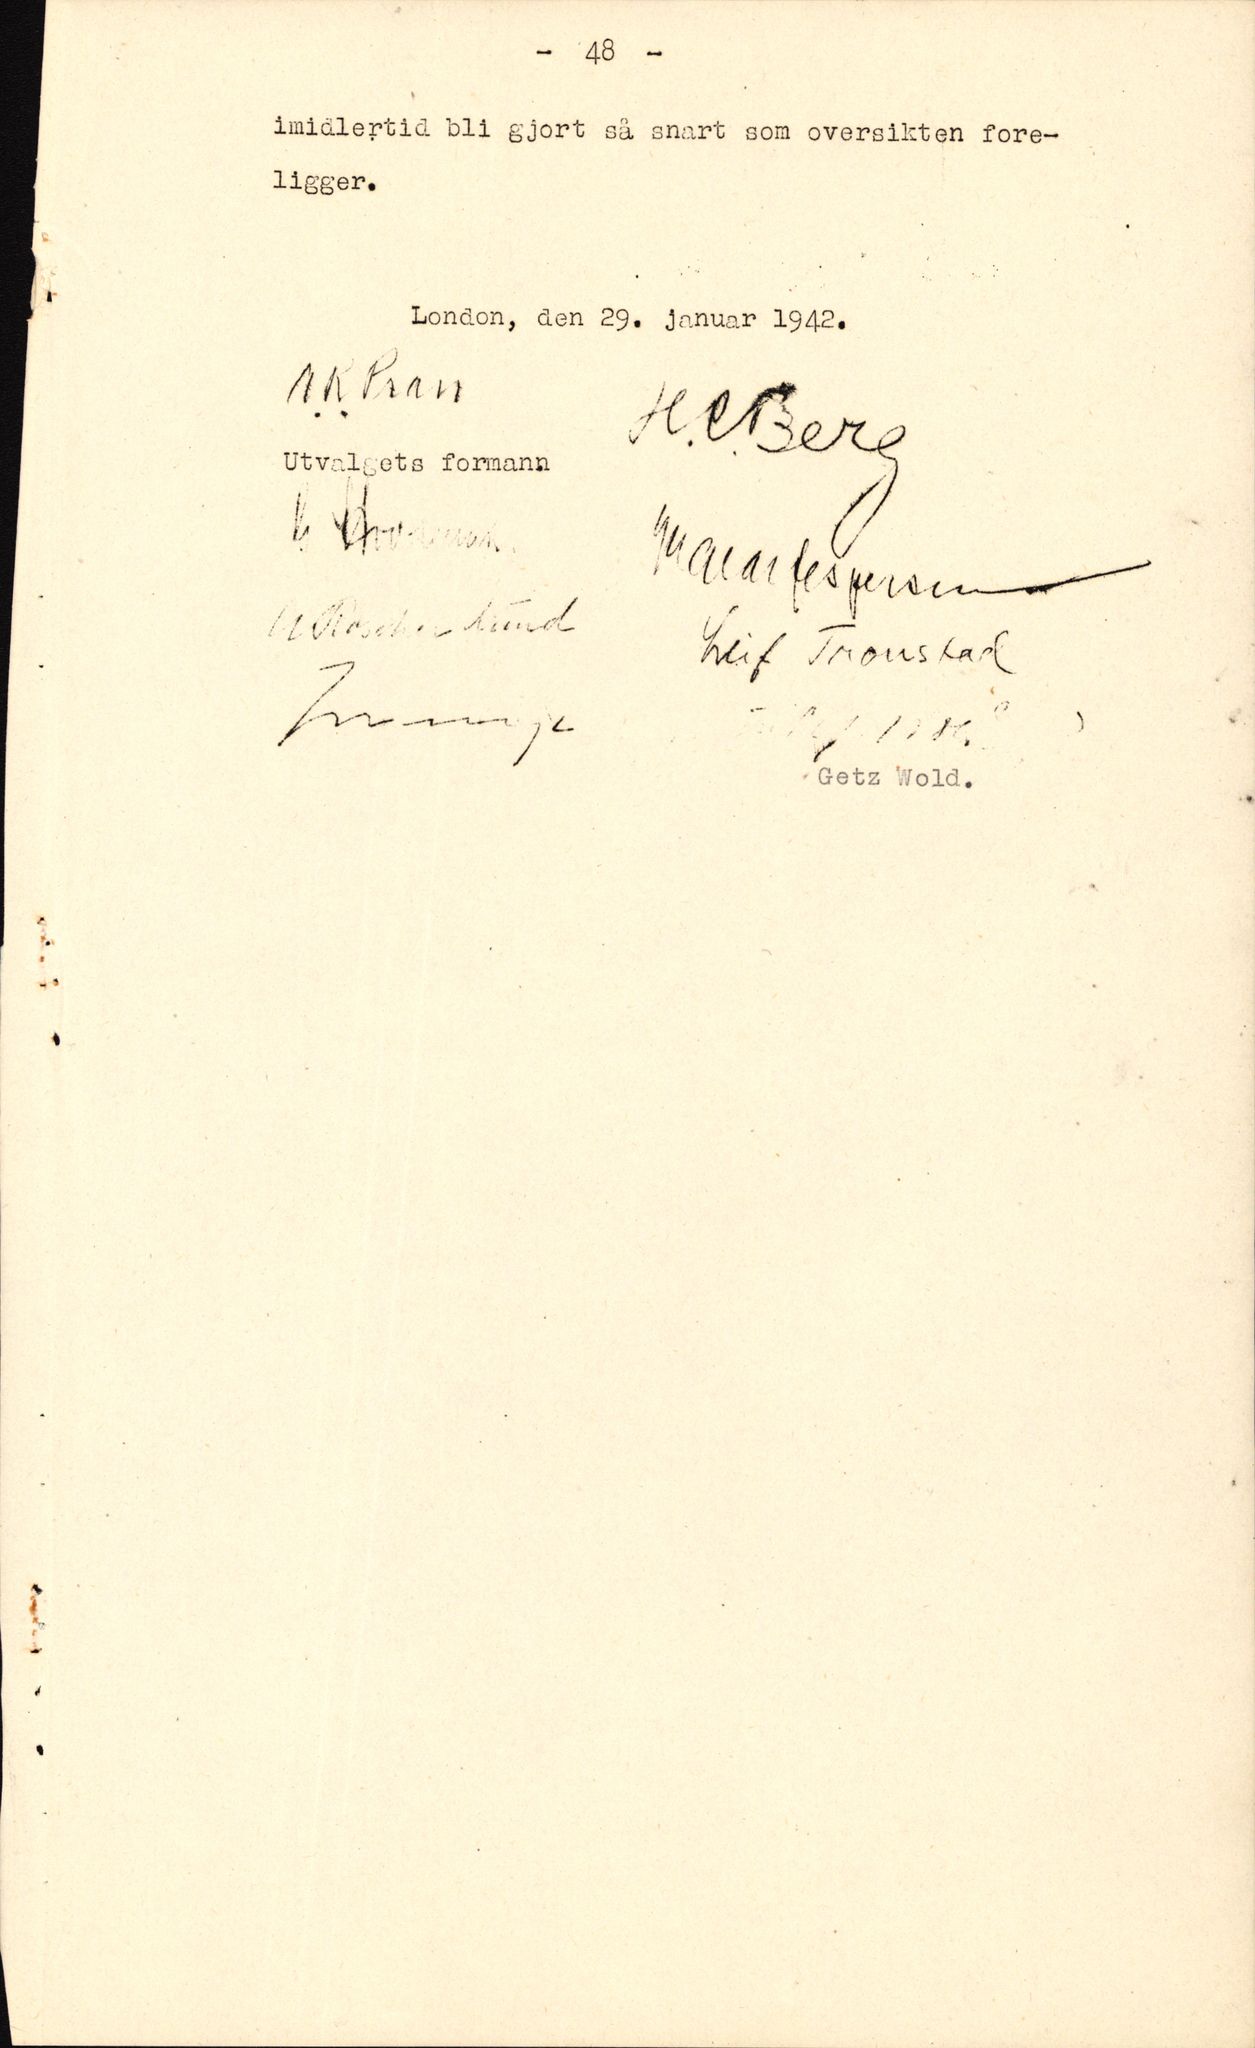 - 48 -
imidlertid bli gjort så snart som oversikten fore-
ligger.
London, den 29. januar 1942.
N.R. Pran
H.C. Berg
Utvalgets formann
Jespersen
Roscher Lund
Leif Tronstad
Getz Wold.